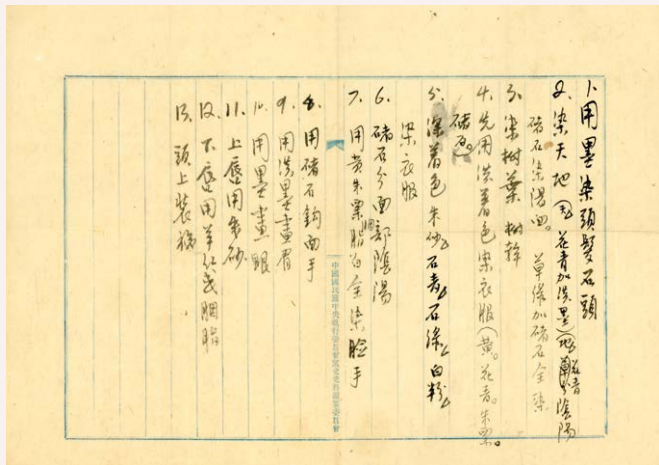 1. 用墨染頭髮石頭
2. 染天地(天 花青加淡墨)(地 赭青 分陰陽
赭石染陽面。草綠加赭石全染
3. 染樹葉 樹幹
4. 先用淡著色染衣服(黃。花青。朱栗。
赭石。)
5. 深著色 朱砂 石青 石綠 白粉
染衣服
6. 赭石分面部陰陽
7. 用黃朱栗胭脂白全染臉手
8. 用赭石鈎面手
9. 用淡墨畫眉
10. 用墨畫眼
11. 上唇用朱砂
12. 下唇用洋紅或胭脂
13. 頭上裝
中國國民黨中央執行委員會黨史史料編纂委員會